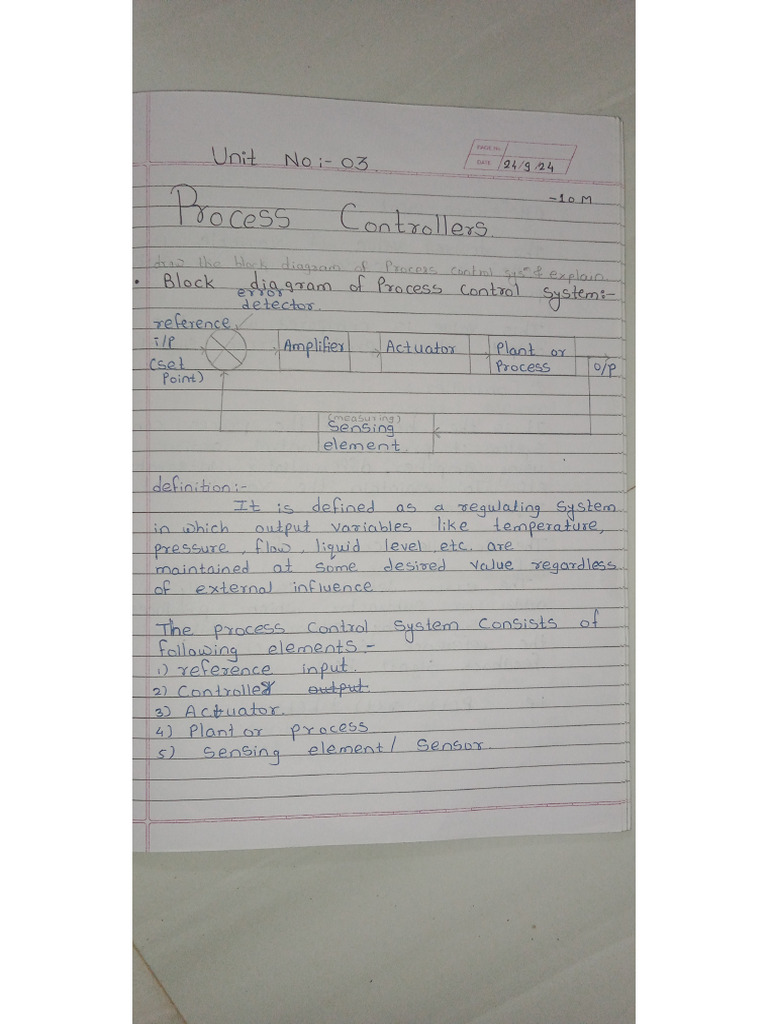 Unit No:- 03.
PAGE No.
DATE 24/9/24
-10 M
Process Controllers.
draw the block diagram of Process control sysm & explain
• Block diagram of Process control system:-
error
detector
reference
i/p
(set
Point)
Amplifier
Actuator
Plant or
Process
o/p
(measuring)
Sensing
element
definition:-
It is defined as a regulating system
in which output variables like temperature,
pressure, flow, liquid level, etc. are
maintained at some desired value regardless
of external influence
The process control system consists of
following elements:-
1) reference input.
2) Controller output
3) Actuator.
4) Plant or process
5) Sensing element / Sensor.